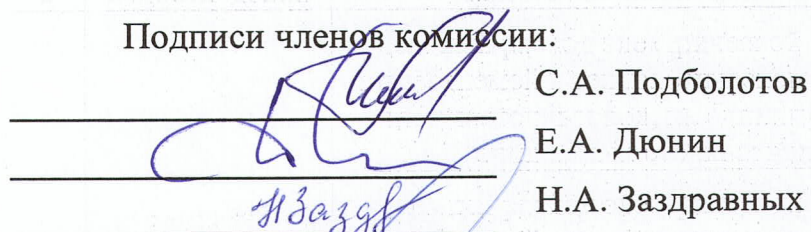 Подписи членов комиссии:
С.А. Подболотов
Е.А. Дюнин
НЗазд
Н.А. Заздравных